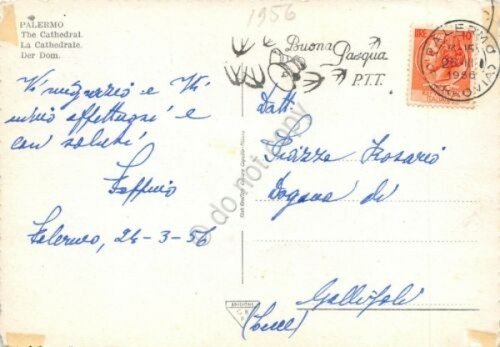 1956
PALERMO
The Cathedral.
La Cathédrale.
Der Dom.
Buona
Pasqua
P.T.T.
LIRE 10
PALERMO
1956
FERROVIA
Vi ringrazio e Vi
invio affettuosi e
cari saluti
Palermo, 24-3-56
Dott.
Piazza Rosario
Dogana di
Gallipoli
(Lecce)
© do not copy